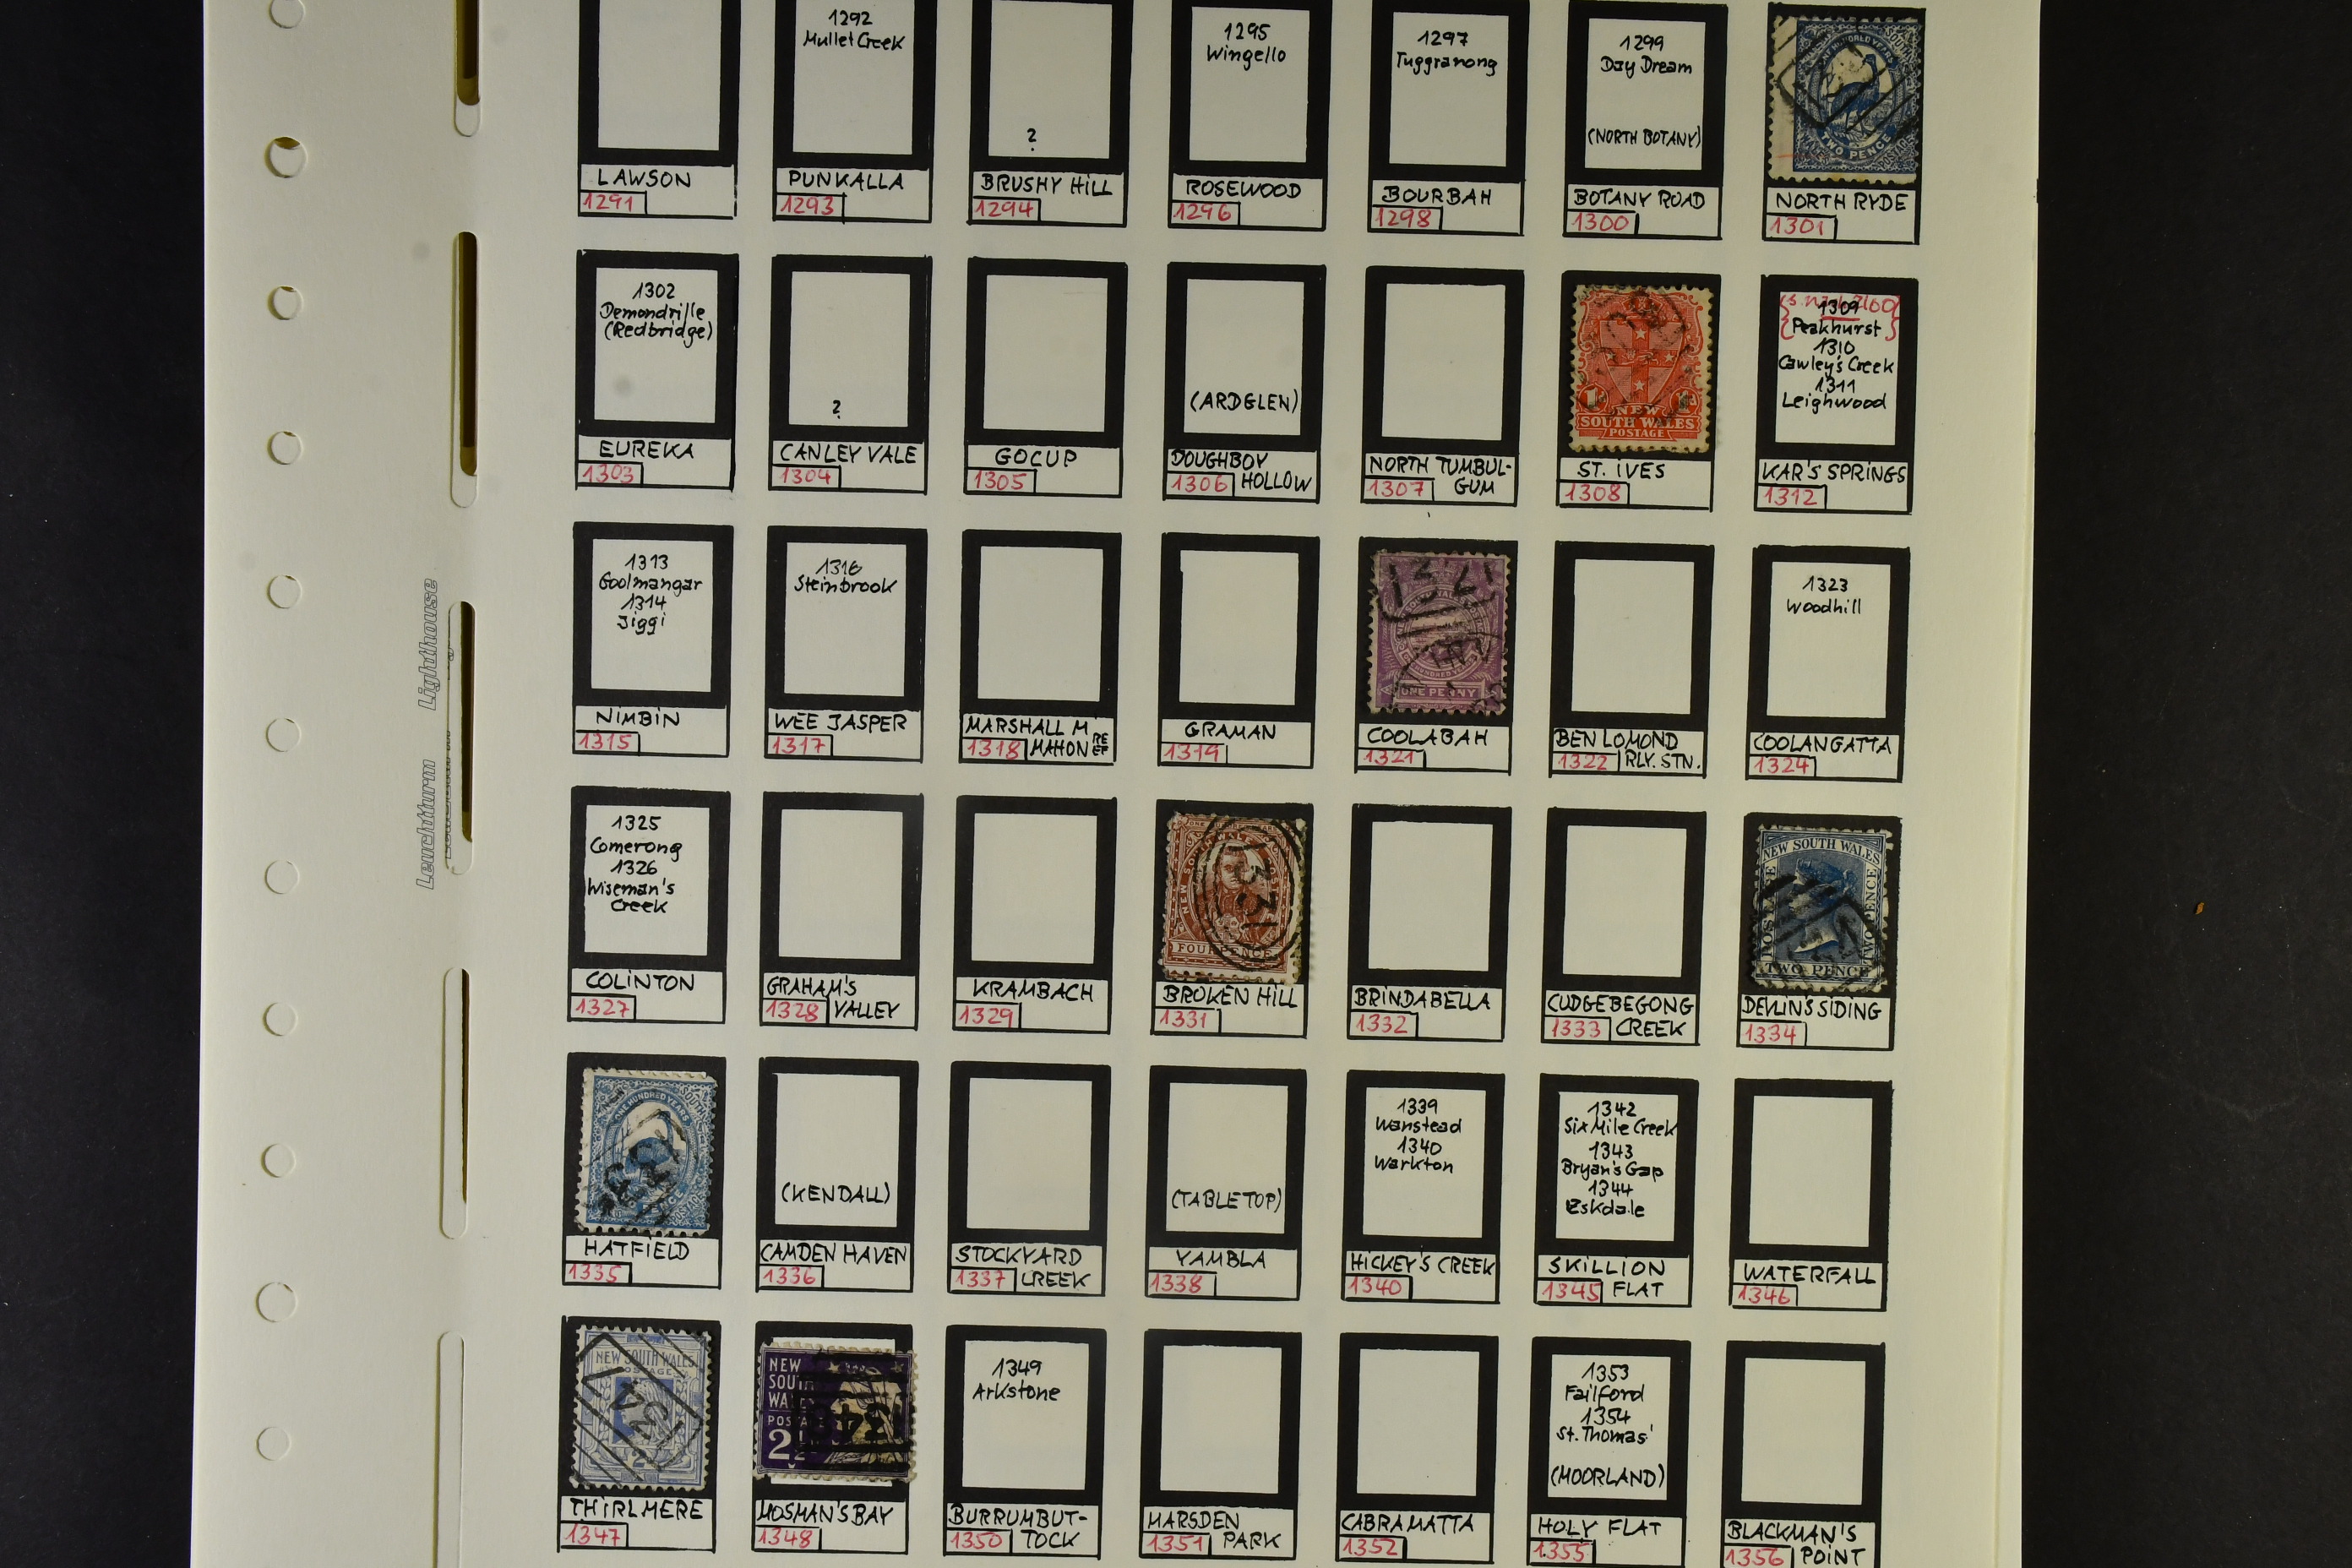 1292
Mullet Creek
?
1295
Wingello
1297
Tuggranong
1299
Day Dream
(NORTH BOTANY)
TWO PENCE
LAWSON
1291
PUNKALLA
1293
BRUSHY HILL
1294
ROSEWOOD
1296
BOURBAH
1298
BOTANY ROAD
1300
NORTH RYDE
1301
1302
Demondrille
(Redbridge)
?
(ARDGLEN)
1d 1d
NEW
SOUTH WALES
POSTAGE
1309
Peakhurst
1310
Cawley's Creek
1311
Leighwood
EUREKA
1303
CANLEY VALE
1304
GOCUP
1305
DOUGHBOY
1306 HOLLOW
NORTH TUMBUL-
1307 GUM
ST. IVES
1308
KAR'S SPRINGS
1312
1313
Goolmangar
1314
Jiggi
1316
Steinbrook
1321
ONE PENNY
1323
Woodhill
NIMBIN
1315
WEE JASPER
1317
MARSHALL M
1318 MAHON REEF
GRAMAN
1319
COOLABAH
1321
BEN LOMOND
1322 RLY. STN.
COOLANGATTA
1324
1325
Comerong
1326
Wiseman's
Creek
1331
FOUR PENCE
NEW SOUTH WALES
POSTAGE
TWO PENCE
TWO PENCE
COLINTON
1327
GRAHAM'S
1328 VALLEY
KRAMBACH
1329
BROKEN HILL
1331
BRINDABELLA
1332
CUDGEBEGONG
1333 CREEK
DEVLIN'S SIDING
1334
ONE HUNDRED YEARS
(KENDALL)
(TABLE TOP)
1339
Wanstead
1340
Warkton
1342
Six Mile Creek
1343
Bryan's Gap
1344
Eskdale
HATFIELD
1335
CAMDEN HAVEN
1336
STOCKYARD
1337 CREEK
YAMBLA
1338
HICKEY'S CREEK
1340
SKILLION
1345 FLAT
WATERFALL
1346
NEW SOUTH WALES
POSTAGE
1347
NEW
SOUTH
WALES
POSTAGE
2½
1348
1349
Arkstone
1353
Failford
1354
St. Thomas'
(MOORLAND)
THIRLMERE
1347
MOSMAN'S BAY
1348
BURRUMBUT-
1350 TOCK
MARSDEN
1351 PARK
CABRAMATTA
1352
HOLY FLAT
1355
BLACKMAN'S
1356 POINT
Leuchtturm Lighthouse